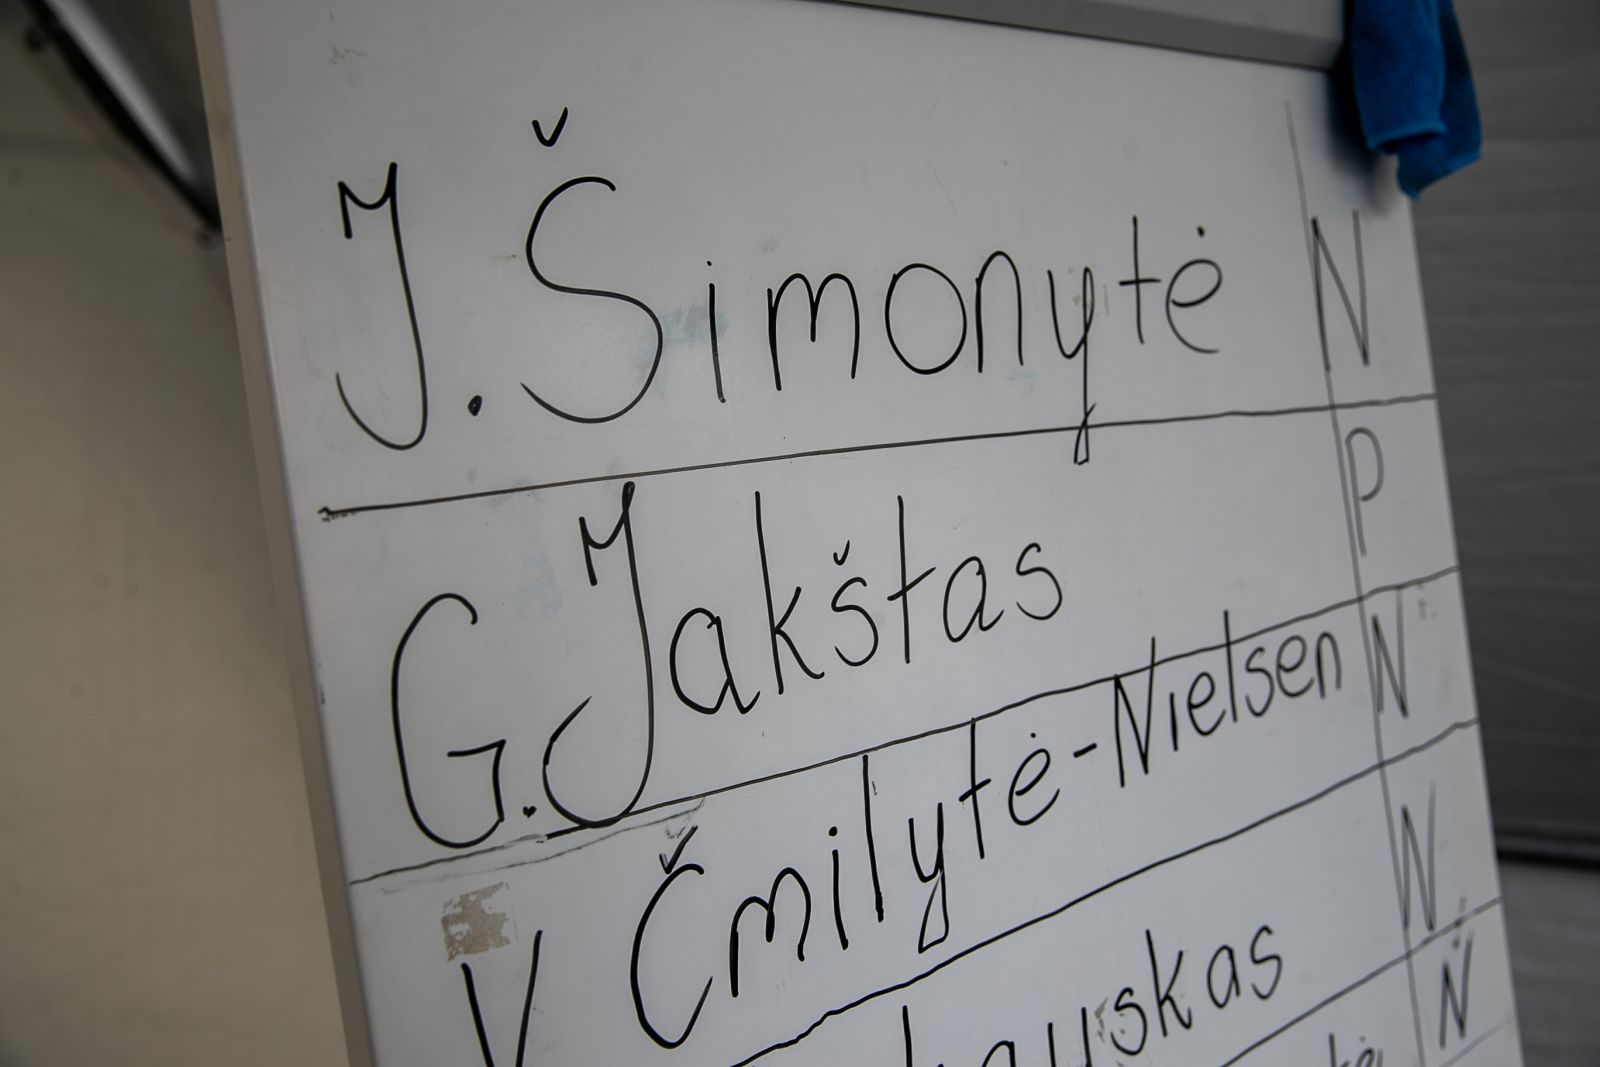 I. Šimonytė N
G. Jakštas P
V. Čmilytė-Nielsen N
N
N